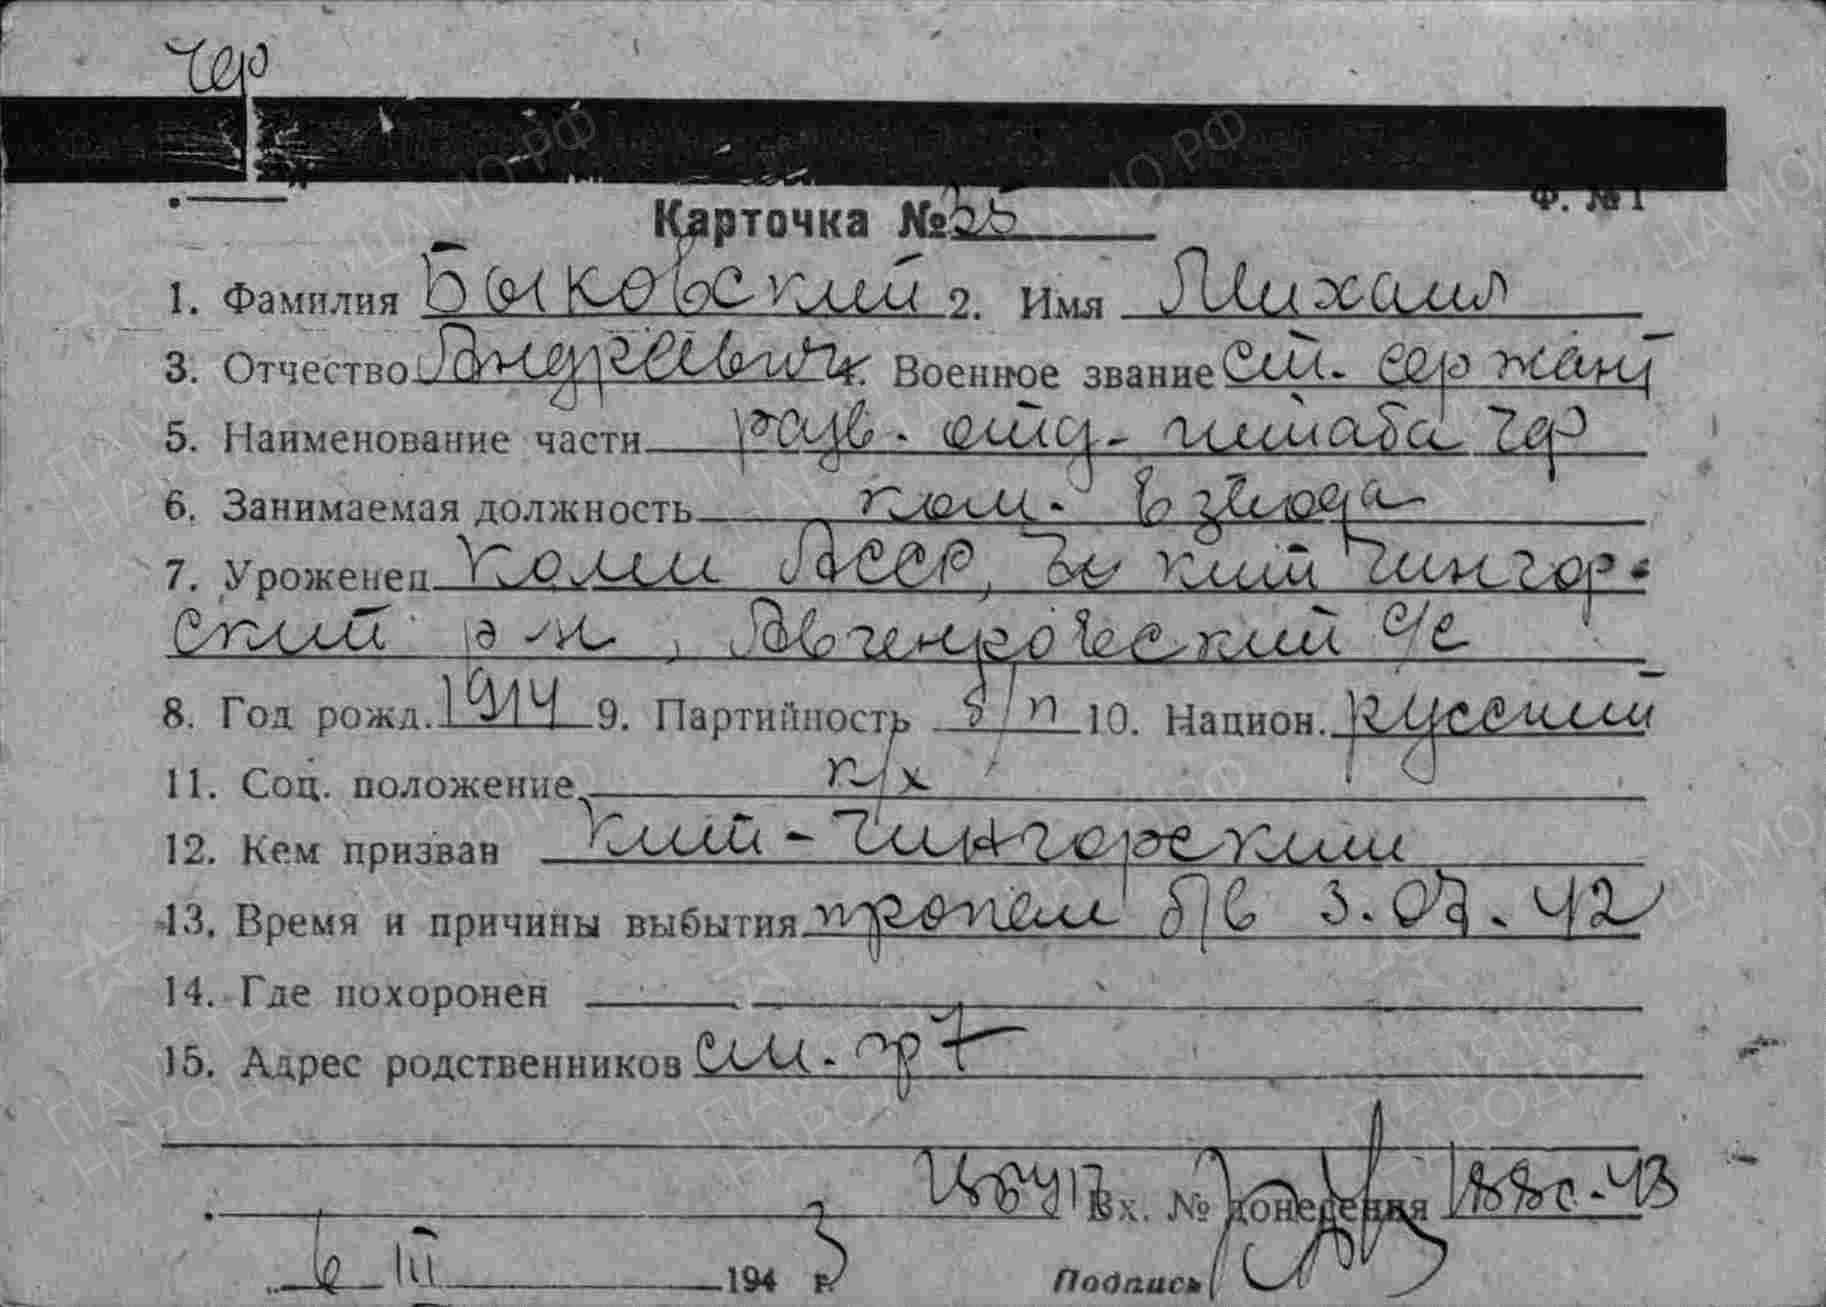 чф
Ф. № 1
Карточка № 35
1. Фамилия Быковский 2. Имя Михаил
3. Отчество Андреевич 4. Военное звание ст. сержант
5. Наименование части разв. отд. штаба чф
6. Занимаемая должность ком. взвода
7. Уроженец Коми АССР, кий чингор-
ский р-н, с/с
8. Год рожд. 1914 9. Партийность б/п 10. Национ. русский
11. Соц. положение к/х
12. Кем призван Кий-Чингорским
13. Время и причины выбытия пропал б/в 3.07.42
14. Где похоронен
15. Адрес родственников см. гр 7
Вх. № донесения 188с-43
6 III 1943 г. Подпись
ПАМЯТЬ НАРОДА
ЦАМО РФ